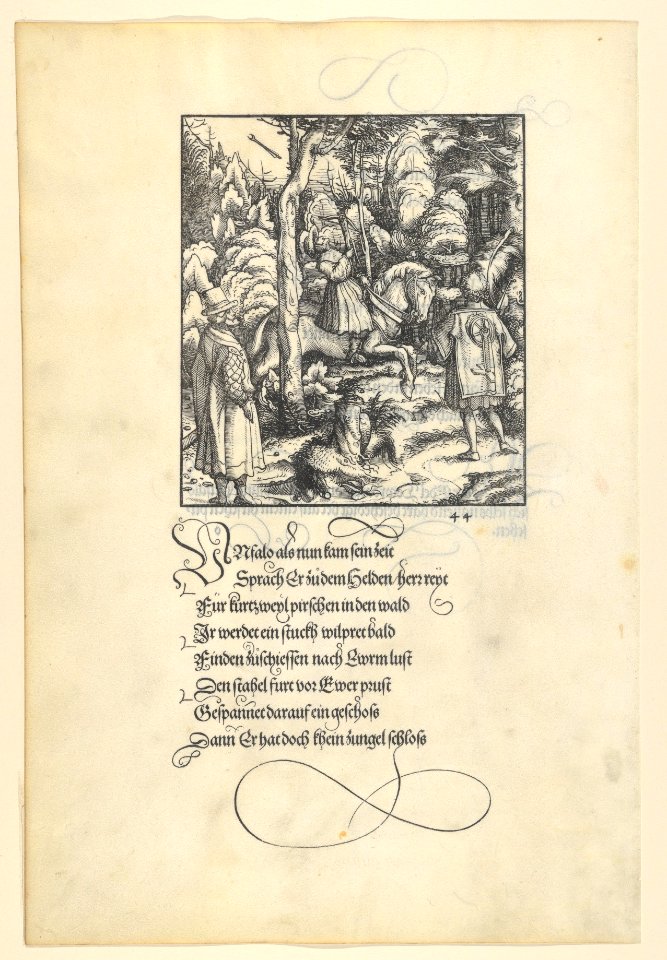 44
VNfalo als nun kam sein zeit
Sprach Er zu dem Helden herr reyt
Für kurtzweyl pirschen in den wald
Ir werdet ein stuckh wilpret bald
Finden zuschiessen nach Ewrm lust
Den stahel furt vor Ewer prust
Gespannet darauf ein geschoss
Dann Er hat doch khein zungel schloss